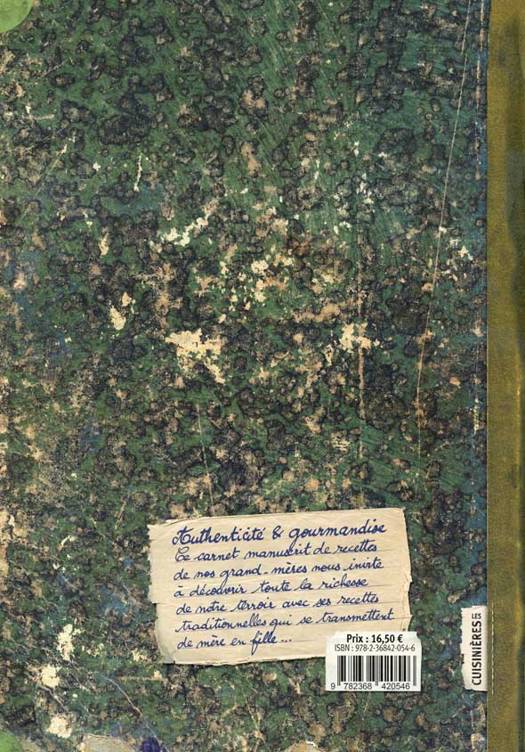 Authenticité & gourmandise
Ce carnet manuscrit de recettes
de nos grand-mères nous invite
à découvrir toute la richesse
de notre terroir avec ses recettes
traditionnelles qui se transmettent
de mère en fille...
Prix : 16,50 €
ISBN : 978-2-36842-054-6
9 782368 420546
CUISINIÈRES